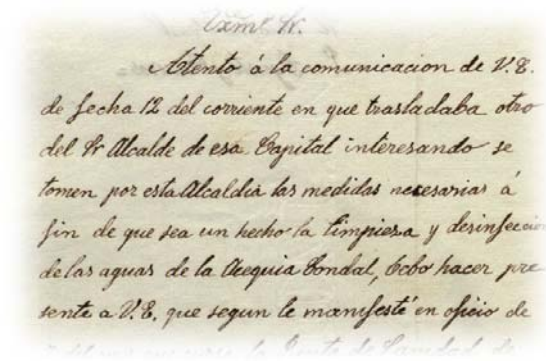 Exmo Sr.
Atento á la comunicacion de V.E.
de fecha 12 del corriente en que trasladaba otro
del Sr Alcalde de esa Capital interesando se
tomen por esta Alcaldia las medidas necesarias á
fin de que sea un hecho la limpieza y desinfeccion
de las aguas de la Acequia Condal, debo hacer pre
sente a V.E. que segun le manifesté en oficio de